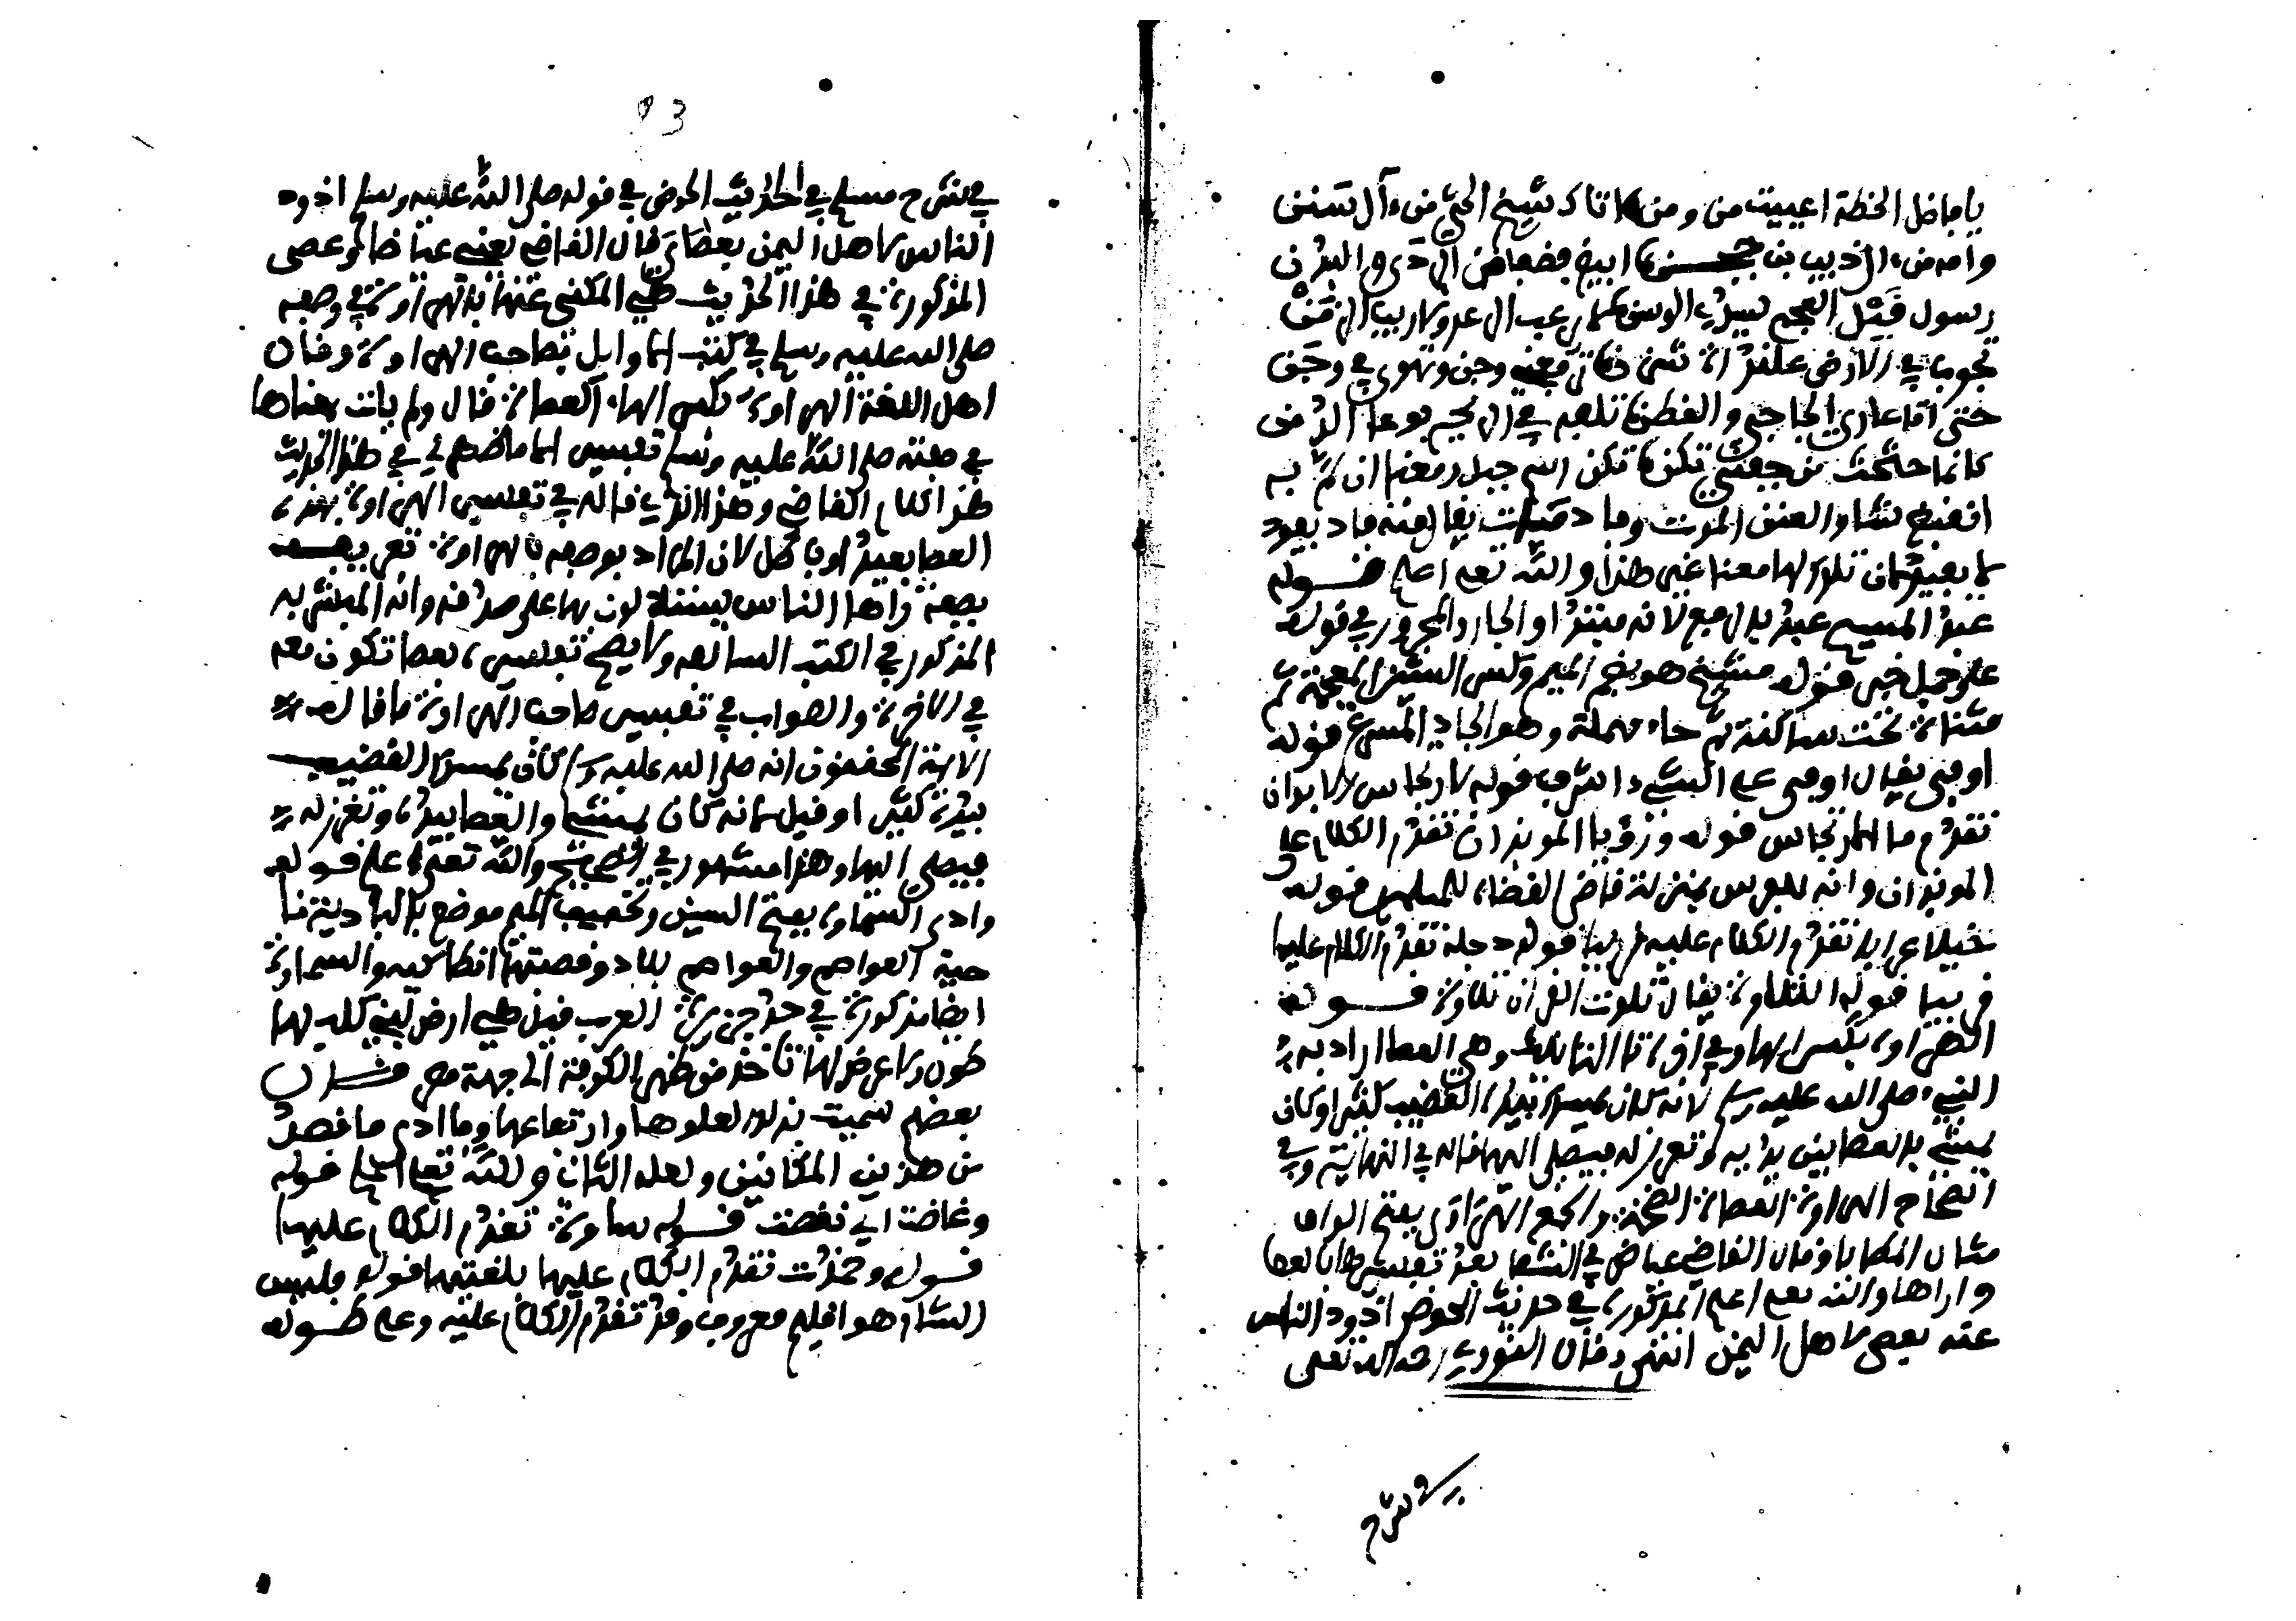 يا فاضل الخطة اعييت من ومن اتاك شيخ الحي من ءال سنن
وامه من ءال ذيب بن حجن ابيض فضفاض الردى والبدن
رسول قيل العجم يسري للوسن لا يرهب الرعد ولا ريب الزمن
تجوب في الارض علنداة شزن ترفعني وجن وتهوي في وجن
حتى اتا عاري الجآجي والقطن تلفه في الريح بوغاء الدمن
كانما حثحث من جفني ثكن ثكن اسم جبل ومعنا
عبد المسيح عبد بالرفع لانه مبتدا والجار والمجرور في قوله
على جمل خبر قوله مشيح هو بضم الميم وكسر الشين المعجمة ثم
مثناة تحت ساكنة ثم حاء مهملة وهو الجاد المسرع قوله
اوفى يقال اوفى على الشيء اشرف قوله لارتجاس الايوان
تقدم ما الارتجاس قوله ورؤيا الموبذان تقدم الكلام على
الموبذان وانه للفرس بمنزلة قاضي القضاة للمسلمين قوله
خيلا عرابا تقدم الكلام عليه قريبا قوله دجلة تقدم الكلام عليها
قريبا قوله التلاوة يقال تلوت القرءان تلاوة قوله
الهراوة بكسر الهاء وفي اخره تاء التانيث وهي العصا اراد به
النبيء صلى الله عليه وسلم لانه كان يمسك بيده القضيب كثيرا وكان
يمشى بالعصا بين يديه وتغرز له فيصلي اليها قاله في النهاية وفي
الصحاح الهراوة العصاة الضخمة والجمع الهراوى بفتح الواو
مثال المطايا وقال القاضي عياض في الشفا بعد تفسيرها بالعصا
واراها والله اعلم المذكورة في حديث الحوض اذود الناس
عنه بعصى لاهل اليمن انتهى وقال النووي رحمه الله تعلى
في شرح
93
في شرح مسلم في الحديث الحوض في قوله صلى الله عليه وسلم اذود
الناس لاهل اليمن بعصاي قال القاضي يعني عياضا وعصى
المذكورة في هذا الحديث هي المكنى عنها بالهراوة في وصفه
صلى الله عليه وسلم في كتب الاوايل بصاحب الهراوة وقال
اهل اللغة الهراوة بكسر الهاء العصاة قال ولم يات لمعناها
في صفته صلى الله عليه وسلم تفسير الا ما ظهر لي في هذا الحديث
هذا كلام القاضي وهذا الذي قاله في تفسير الهراوة بهذه
العصا بعيد او باطل لان المراد بوصفه بالهراوة تعريفه
بصفة يراها الناس يستدلون بها على صدقه وانه المبشر به
المذكور في الكتب السالفة ولا يصح تفسيره بعصا تكون معه
في الاخرة والصواب في تفسير صاحب الهراوة ما قاله
الايمة المحققون انه صلى الله عليه وسلم كان يمسك القضيب
بيده كثيرا وقيل لانه كان يمشى والعصا بيده وتغرز له
فيصلي اليها وهذا مشهور في الصحيح والله تعلى اعلم قوله
وادي السماوة بفتح السين وتخفيف الميم موضع بالبادية
حية العواصم والعواصم بلاد وقصبتها انطاكية والسماوة
ايضا مذكورة في حد جزيرة العرب قيل هي ارض لبني كلب لها
طول ولا عرض لها تاخذ من ظهر الكوفة الى جهة مصر قال
بعضهم سميت بذلك لعلوها وارتفاعها وما ادري ما قصد
من هذين المكانين ولعله الثاني والله تعلى اعلم قوله
وغاضت اي نقصت قوله ساوة تقدم الكلام عليها
قوله وخمدت تقدم الكلام عليها بلغتيها قوله فليس
الشام هو اقليم معروف وقد تقدم الكلام عليه وعلى طوله